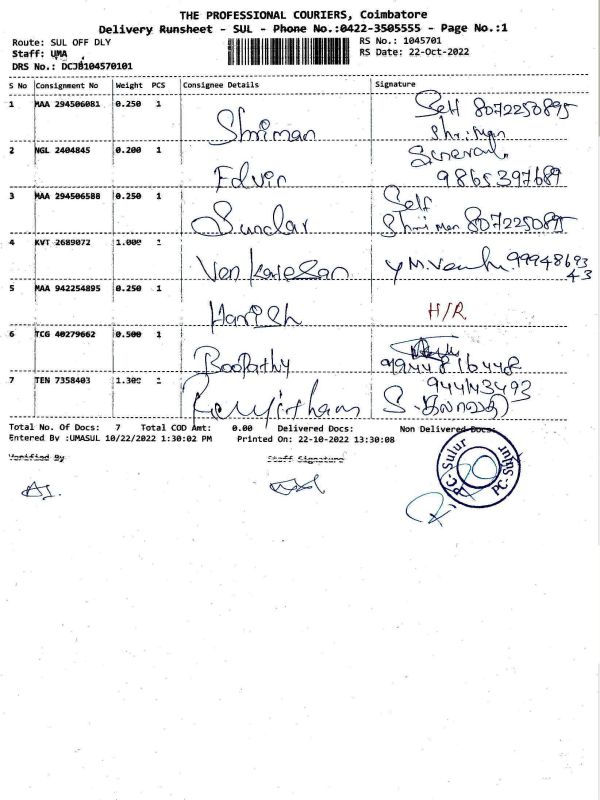 THE PROFESSIONAL COURIERS, Coimbatore
Delivery Runsheet - SUL - Phone No.:0422-3505555 - Page No.:1
Route: SUL OFF DLY RS No.: 1045701
Staff: UMA RS Date: 22-Oct-2022
DRS No.: DCJB104570101
S No Consignment No Weight PCS Consignee Details Signature
1 MAA 294506081 0.250 1 Shriman Self 8072250895
Shriman
2 NGL 2404845 0.200 1 Edvin
9865397689
3 MAA 294506588 0.250 1 Sundar Self
Shriman 8072250895
4 KVT 2689072 1.000 1 Venkatesan 9994869343
5 MAA 942254895 0.250 1 Harish H/R
6 TCG 40279662 0.500 1 Boopathy
9944816448
7 TEN 7358403 1.300 1
S.
Total No. Of Docs: 7 Total COD Amt: 0.00 Delivered Docs: Non Delivered Docs:
Entered By :UMASUL 10/22/2022 1:30:02 PM Printed On: 22-10-2022 13:30:08
Verified By Staff Signature
PC-Sulur PC-Sulur